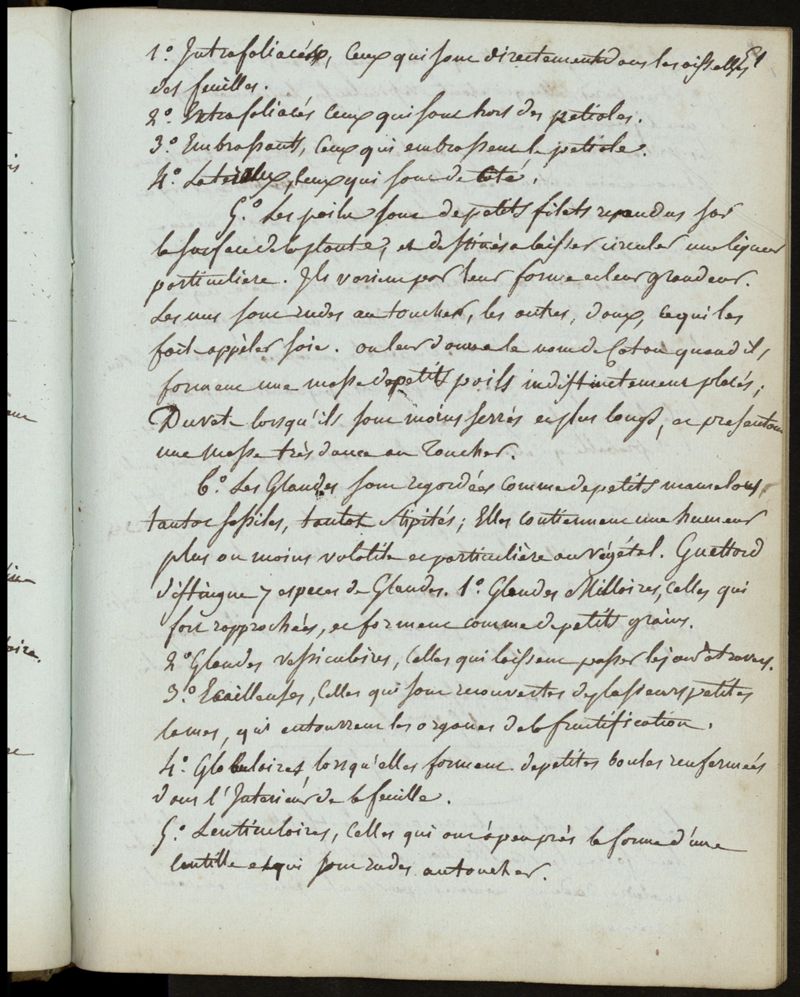 51
1.° Intrafoliacés, Ceux qui sont directement dans les aisselles
des feuilles.
2.° Extrafoliacés Ceux qui sont hors des petioles.
3.° Embrassants, Ceux qui embrassent le petiole.
4.° Lateraux, Ceux qui sont de coté.
5.° Les poils sont de petits filets repandus sur
la surface de la plante, et destinés a laisser circuler une liqueur
particuliere. Ils varient par leur forme et leur grandeur.
Les uns sont rudes au toucher, les autres, doux, ce qui les
fait appèler soie. on leur donne le nom de Coton quand ils
forment une masse de petits poils indistinctement placés;
Duvet lorsqu'ils sont moins serrés et plus longs, et presentent
une masse très douce au Toucher.
6.° Les Glandes sont regardées comme de petits mamelons,
tantot sessiles, tantot stipités; Elles contiennent une humeur
plus ou moins volatile et particulière au végétal. Guettard
distingue 7 especes de Glandes. 1.° Glandes Milliaires, Celles qui
fort rapprochées, et forment comme de petits grains.
2.° Glandes vessiculaires, Celles qui laissent passer le jour à travers.
3.° Ecailleuses, Celles qui sont recouvertes de plusieurs petites
lames, qui entourrent les organes de la fructification.
4.° Globulaires, lorsqu'elles forment de petites boules renfermées
dans l'Interieur de la feuille.
5.° Lenticulaires, Celles qui ont à peu près la forme d'une
lentille et qui sont rudes au toucher.